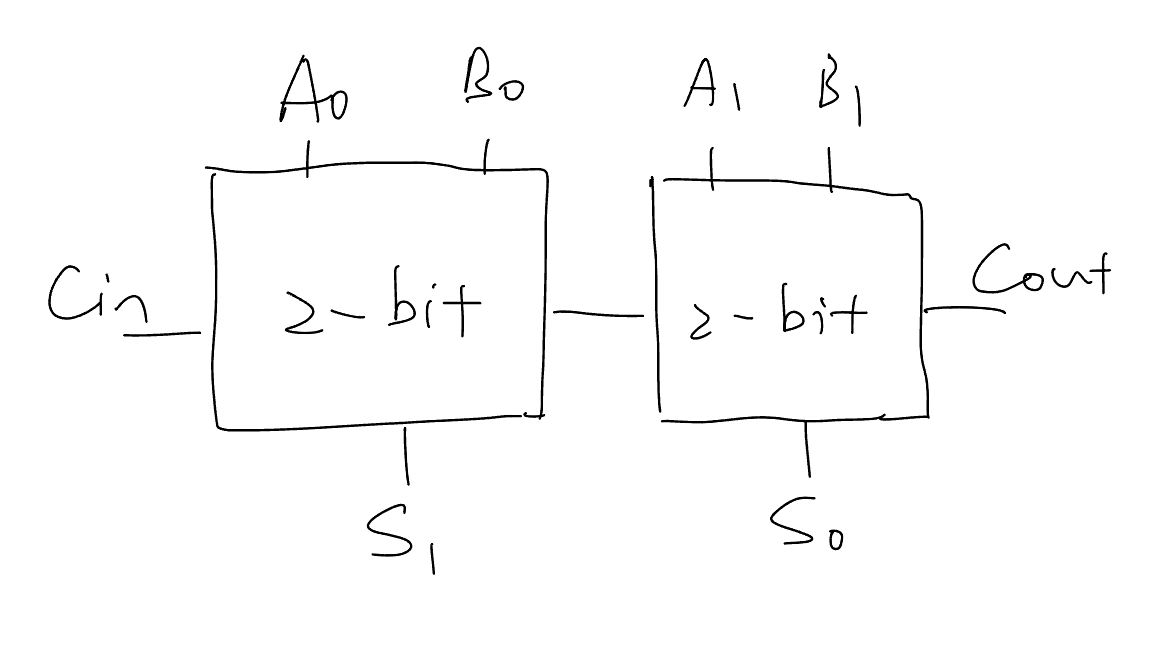 A0 B0 A1 B1
Cin 2-bit 2-bit Cout
S1 S0